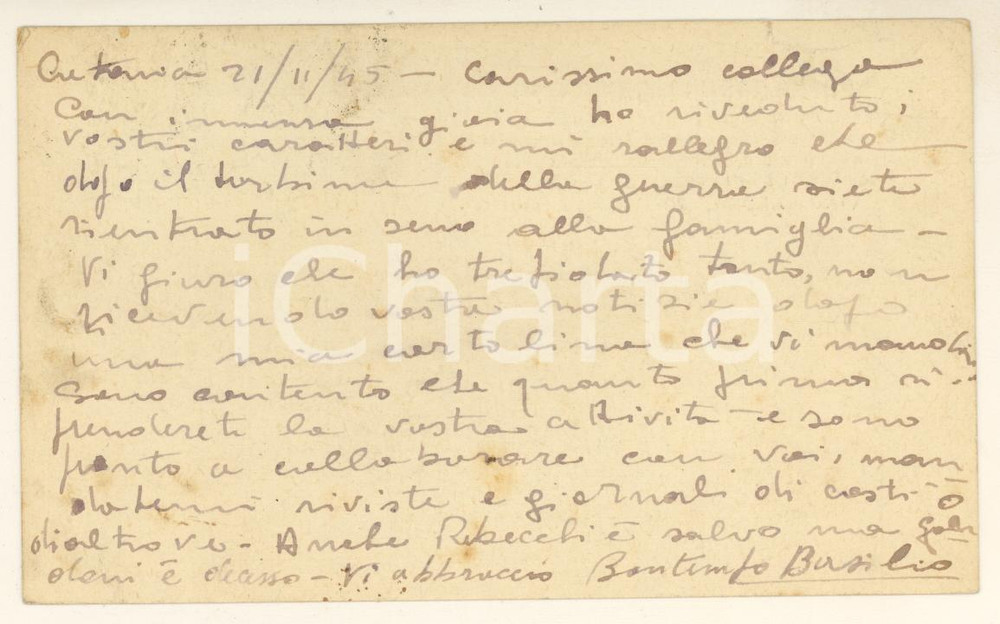 Catania 21/11/45 - Carissimo collega
Con immensa gioia ho riveduto i
vostri caratteri e mi rallegro che
dopo il turbine della guerra siete
rientrato in seno alla famiglia -
Vi giuro che ho trepidato tanto, non
ricevendo vostre notizie dopo
una mia cartolina che vi mandai
Sono contento che quanto prima ri-
prenderete la vostra attività e sono
pronto a collaborare con voi, man
datemi riviste e giornali di costì o
di altrove - Anche Rebecchi è salvo ma
è decesso - Vi abbraccio Bontempo Basilio
iCharta